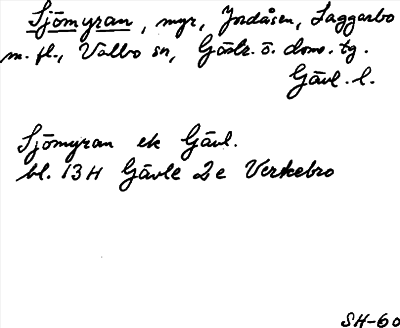 Sjömyran, myr, Jordåsen, Laggarbo
m. fl., Valbo sn, Gästr. ö. dom. tg.
Gävl. l.
Sjömyran ek Gävl.
bl. 13H Gävle 2e Verkebro
SH-60